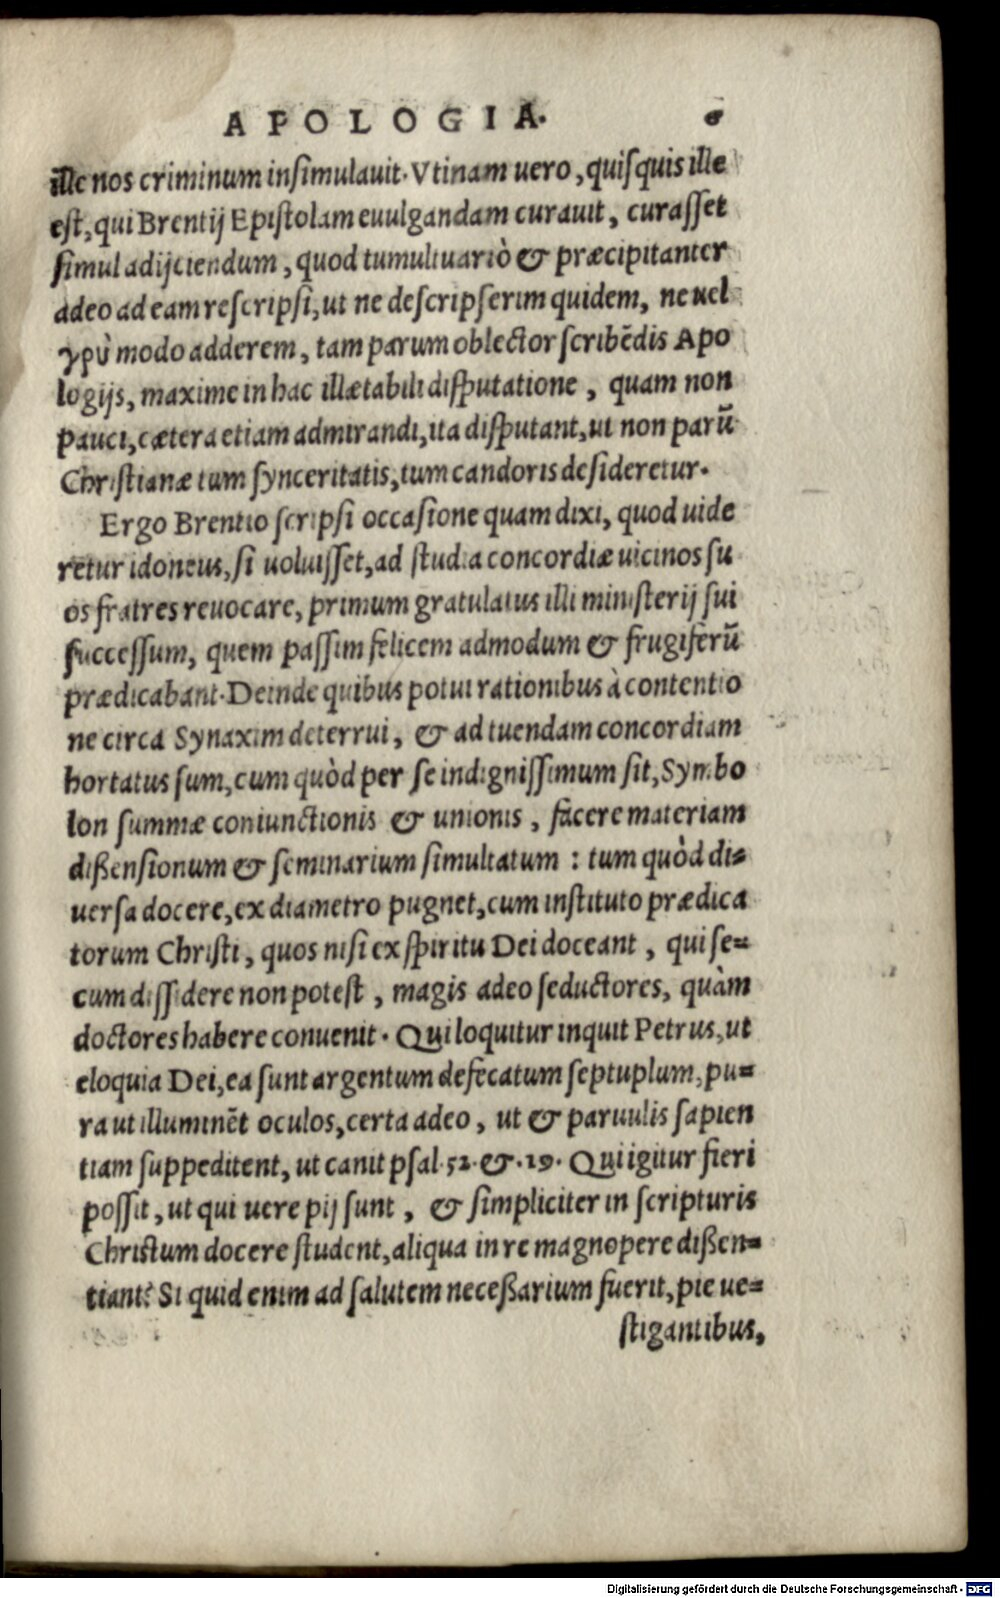 APOLOGIA. 6
ille nos criminum insimulauit. Vtinam uero, quisquis ille
est, qui Brentij Epistolam euulgandam curauit, curasset
simul adijciendum, quod tumultuariò & præcipitanter
adeo ad eam rescripsi, ut ne descripserim quidem, ne uel
γρὺ modo adderem, tam parum oblector scribēdis Apo
logijs, maxime in hac illætabili disputatione, quam non
pauci, cætera etiam admirandi, ita disputant, ut non parū
Christianæ tum synceritatis, tum candoris desideretur.
Ergo Brentio scripsi occasione quam dixi, quod uide
retur idoneus, si uoluisset, ad studia concordiæ uicinos su
os fratres reuocare, primum gratulatus illi ministerij sui
successum, quem passim felicem admodum & frugiferū
prædicabant. Deinde quibus potui rationibus à contentio
ne circa Synaxim deterrui, & ad tuendam concordiam
hortatus sum, cum quòd per se indignissimum sit, Symbo
lon summæ coniunctionis & unionis, facere materiam
dißensionum & seminarium simultatum : tum quòd di=
uersa docere, ex diametro pugnet, cum instituto prædica
torum Christi, quos nisi ex spiritu Dei doceant, qui se=
cum dissidere non potest, magis adeo seductores, quàm
doctores habere conuenit. Qui loquitur inquit Petrus, ut
eloquia Dei, ea sunt argentum defecatum septuplum, pu=
ra ut illuminēt oculos, certa adeo, ut & paruulis sapien
tiam suppeditent, ut canit psal. 52. &. 19. Qui igitur fieri
possit, ut qui uere pij sunt, & simpliciter in scripturis
Christum docere student, aliqua in re magnopere dißen=
tiant? Si quid enim ad salutem neceßarium fuerit, pie ue=
stigantibus,
Digitalisierung gefördert durch die Deutsche Forschungsgemeinschaft - DFG